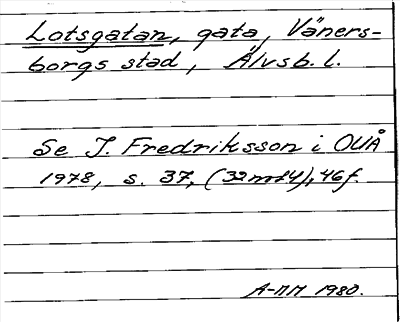 Lotsgatan, gata, Väners-
borgs stad, Älvsb. l.
Se I. Fredriksson i OUÅ
1978, s. 37, (32 not 4), 46 f.
A-MM 1980.